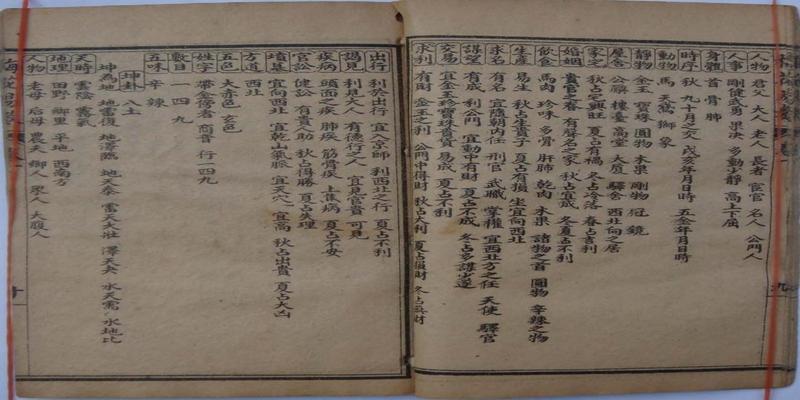 人物 君父 大人 老人 長者 宦官 名人 公門人
人事 剛健武勇 果決 多動少靜 高上下屈
身體 首 骨 肺
時序 秋 九十月之交 戌亥年月日時 五金年月日時
動物 馬 天鵝 獅 象
靜物 金玉 寶珠 圓物 木果 剛物 冠 鏡
屋舍 公廨 樓臺 高堂 大廈 驛舍 西北向之居
家宅 秋占宅興旺 夏占有禍 冬占冷落 春占吉利
婚姻 貴官之眷 有聲名之家 秋占宜成 冬夏占不利
飲食 馬肉 珍味 多骨 肝肺 乾肉 木果 諸物之首 圓物 辛辣之物
生產 易生 秋占生貴子 夏占有損 坐宜向西北
求名 有名 宜隨朝內任 刑官 武職 掌權 宜西北方之任 天使 驛官
謀望 有成 利公門 宜動中有財 夏占不成 冬占多謀少遂
交易 宜金玉珍寶珠貴貨 易成 夏占不利
求利 有財 金玉之利 公門中得財 秋占大利 夏占損財 冬占無財
出行 利於出行 宜入京師 利西北之行 夏占不利
謁見 利見大人 有德行之人 宜見官貴 可見
疾病 頭面之疾 肺疾 筋骨疾 上焦病 夏占不安
官訟 健訟 有貴人助 秋占得勝 夏占失理
墳墓 宜向西北 宜乾山氣脈 宜天穴 宜高 秋占出貴 夏占大凶
方道 西北
五色 大赤色 玄色
姓字 帶金傍者 商音 行一四九
數目 一 四 九
五味 辛 辣
坤卦 八土
坤為地 地雷復 地澤臨 地天泰 雷天大壯 澤天夬 水天需 水地比
天時 雲陰 霧氣
地理 田野 鄉里 平地 西南方
人物 老母 后母 農人 鄉人 眾人 大腹人
九
十